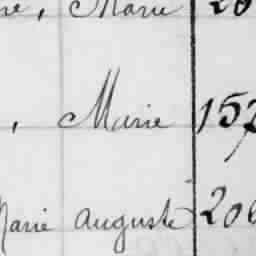 , Marie 20
, Marie 157
Marie Auguste 206